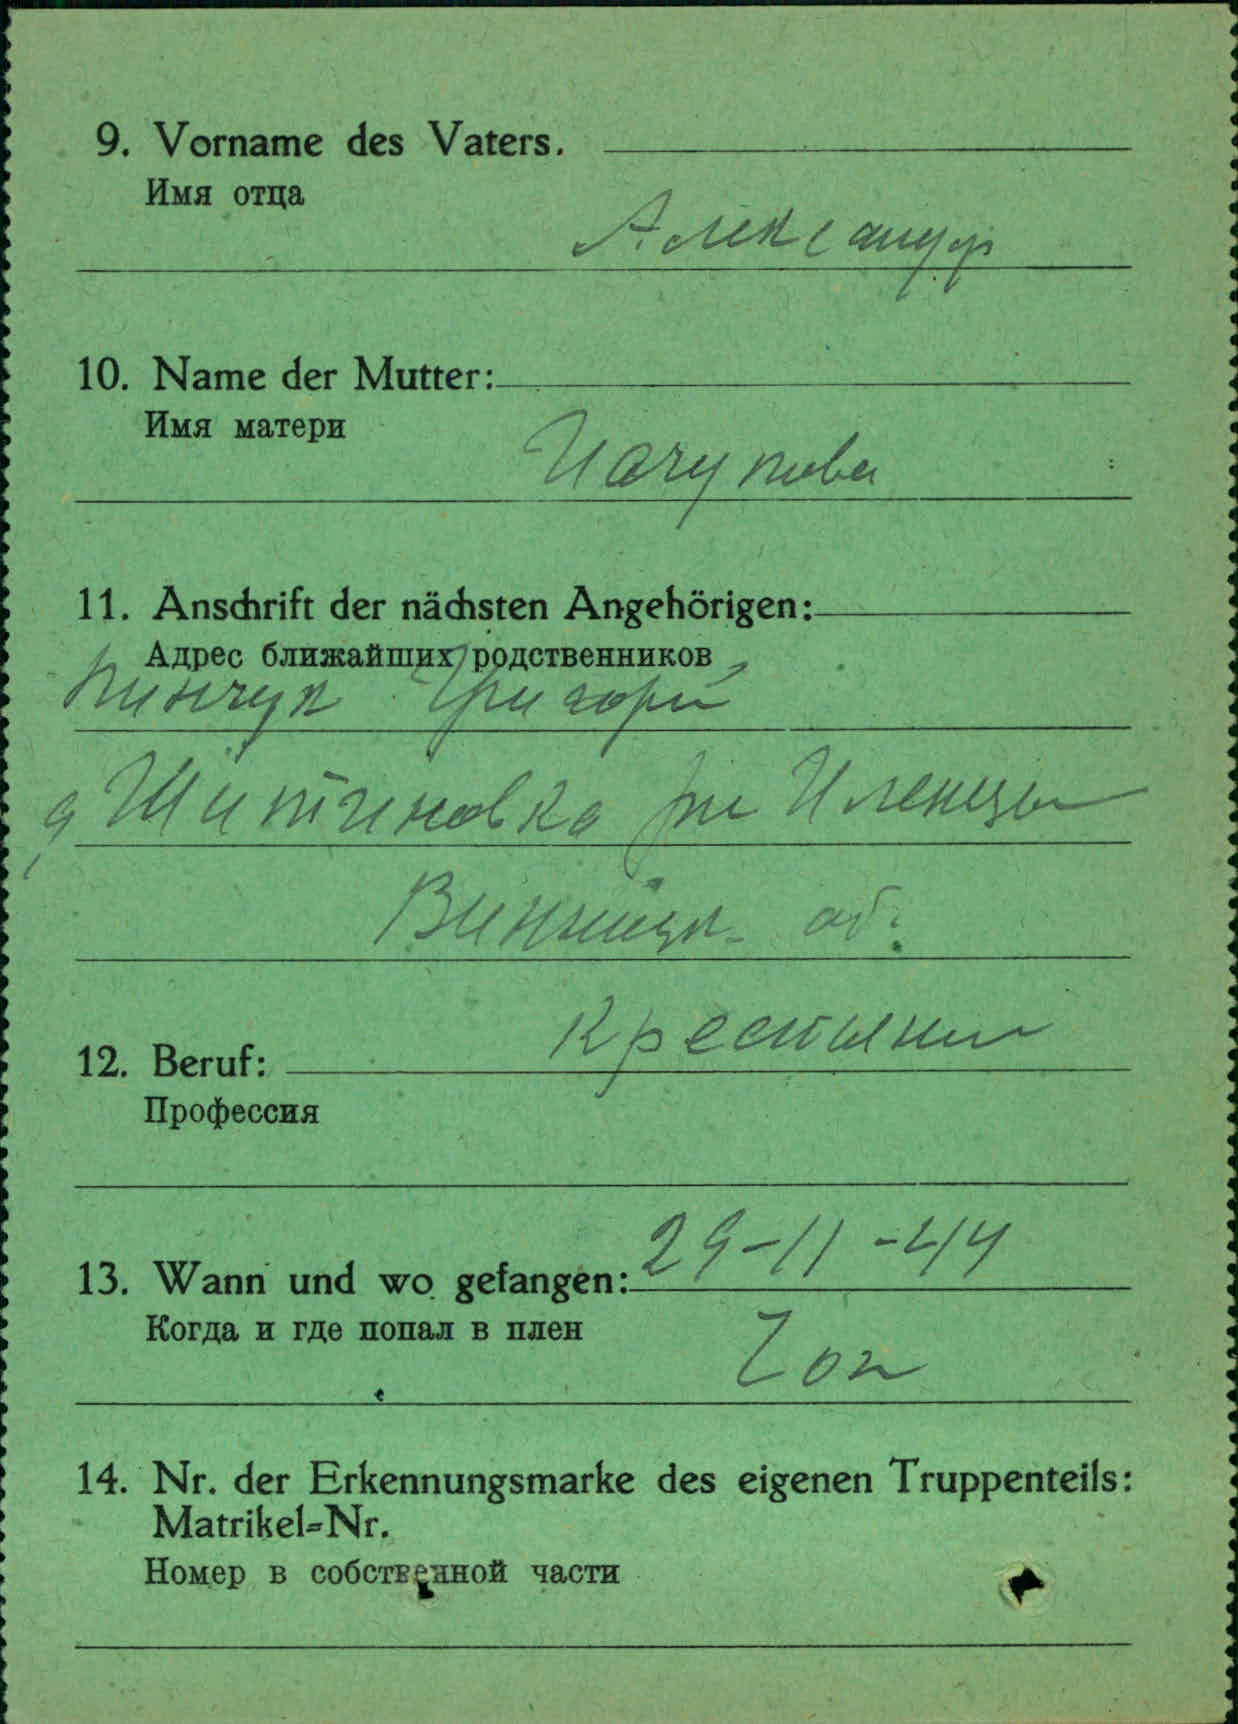 9. Vorname des Vaters.
Имя отца
Александр
10. Name der Mutter:
Имя матери
11. Anschrift der nächsten Angehörigen:
Адрес ближайших родственников
Пинчук Григорий
д Шитиновка рн Иленцы
Винницк. об.
12. Beruf:
крестьянин
Профессия
13. Wann und wo gefangen: 29-11-44
Когда и где попал в плен
14. Nr. der Erkennungsmarke des eigenen Truppenteils:
Matrikel-Nr.
Номер в собственной части